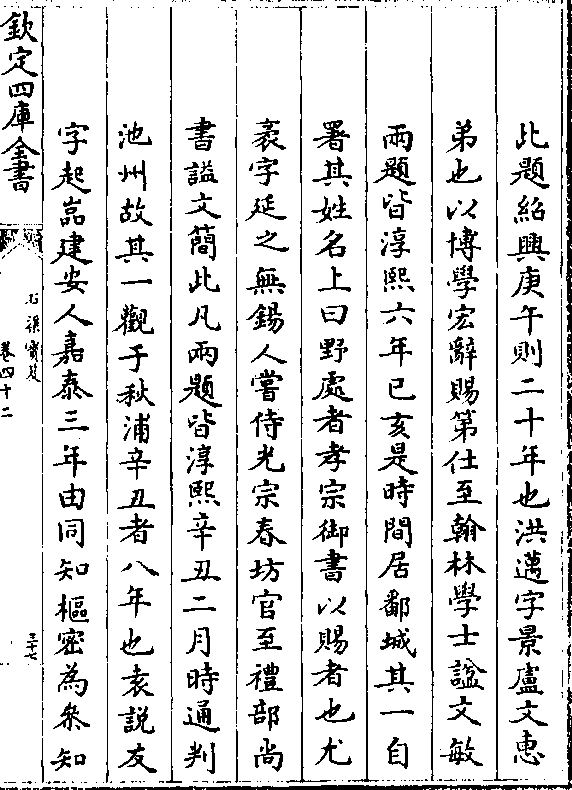 此題紹興庚午則二十年也洪邁字景廬文惠
弟也以博學宏辭賜第仕至翰林學士諡文敏
兩題皆淳熙六年已亥是時間居鄱城其一自
署其姓名上曰野處者孝宗御書以賜者也尤
袤字延之無錫人嘗侍光宗春坊官至禮部尚
書諡文簡此凡兩題皆淳熙辛丑二月時通判
池州故其一觀于秋浦辛丑者八年也袁說友
字起嵓建安人嘉泰三年由同知樞密為叅知
欽定四庫全書
石渠寶笈
卷四十二
三十七